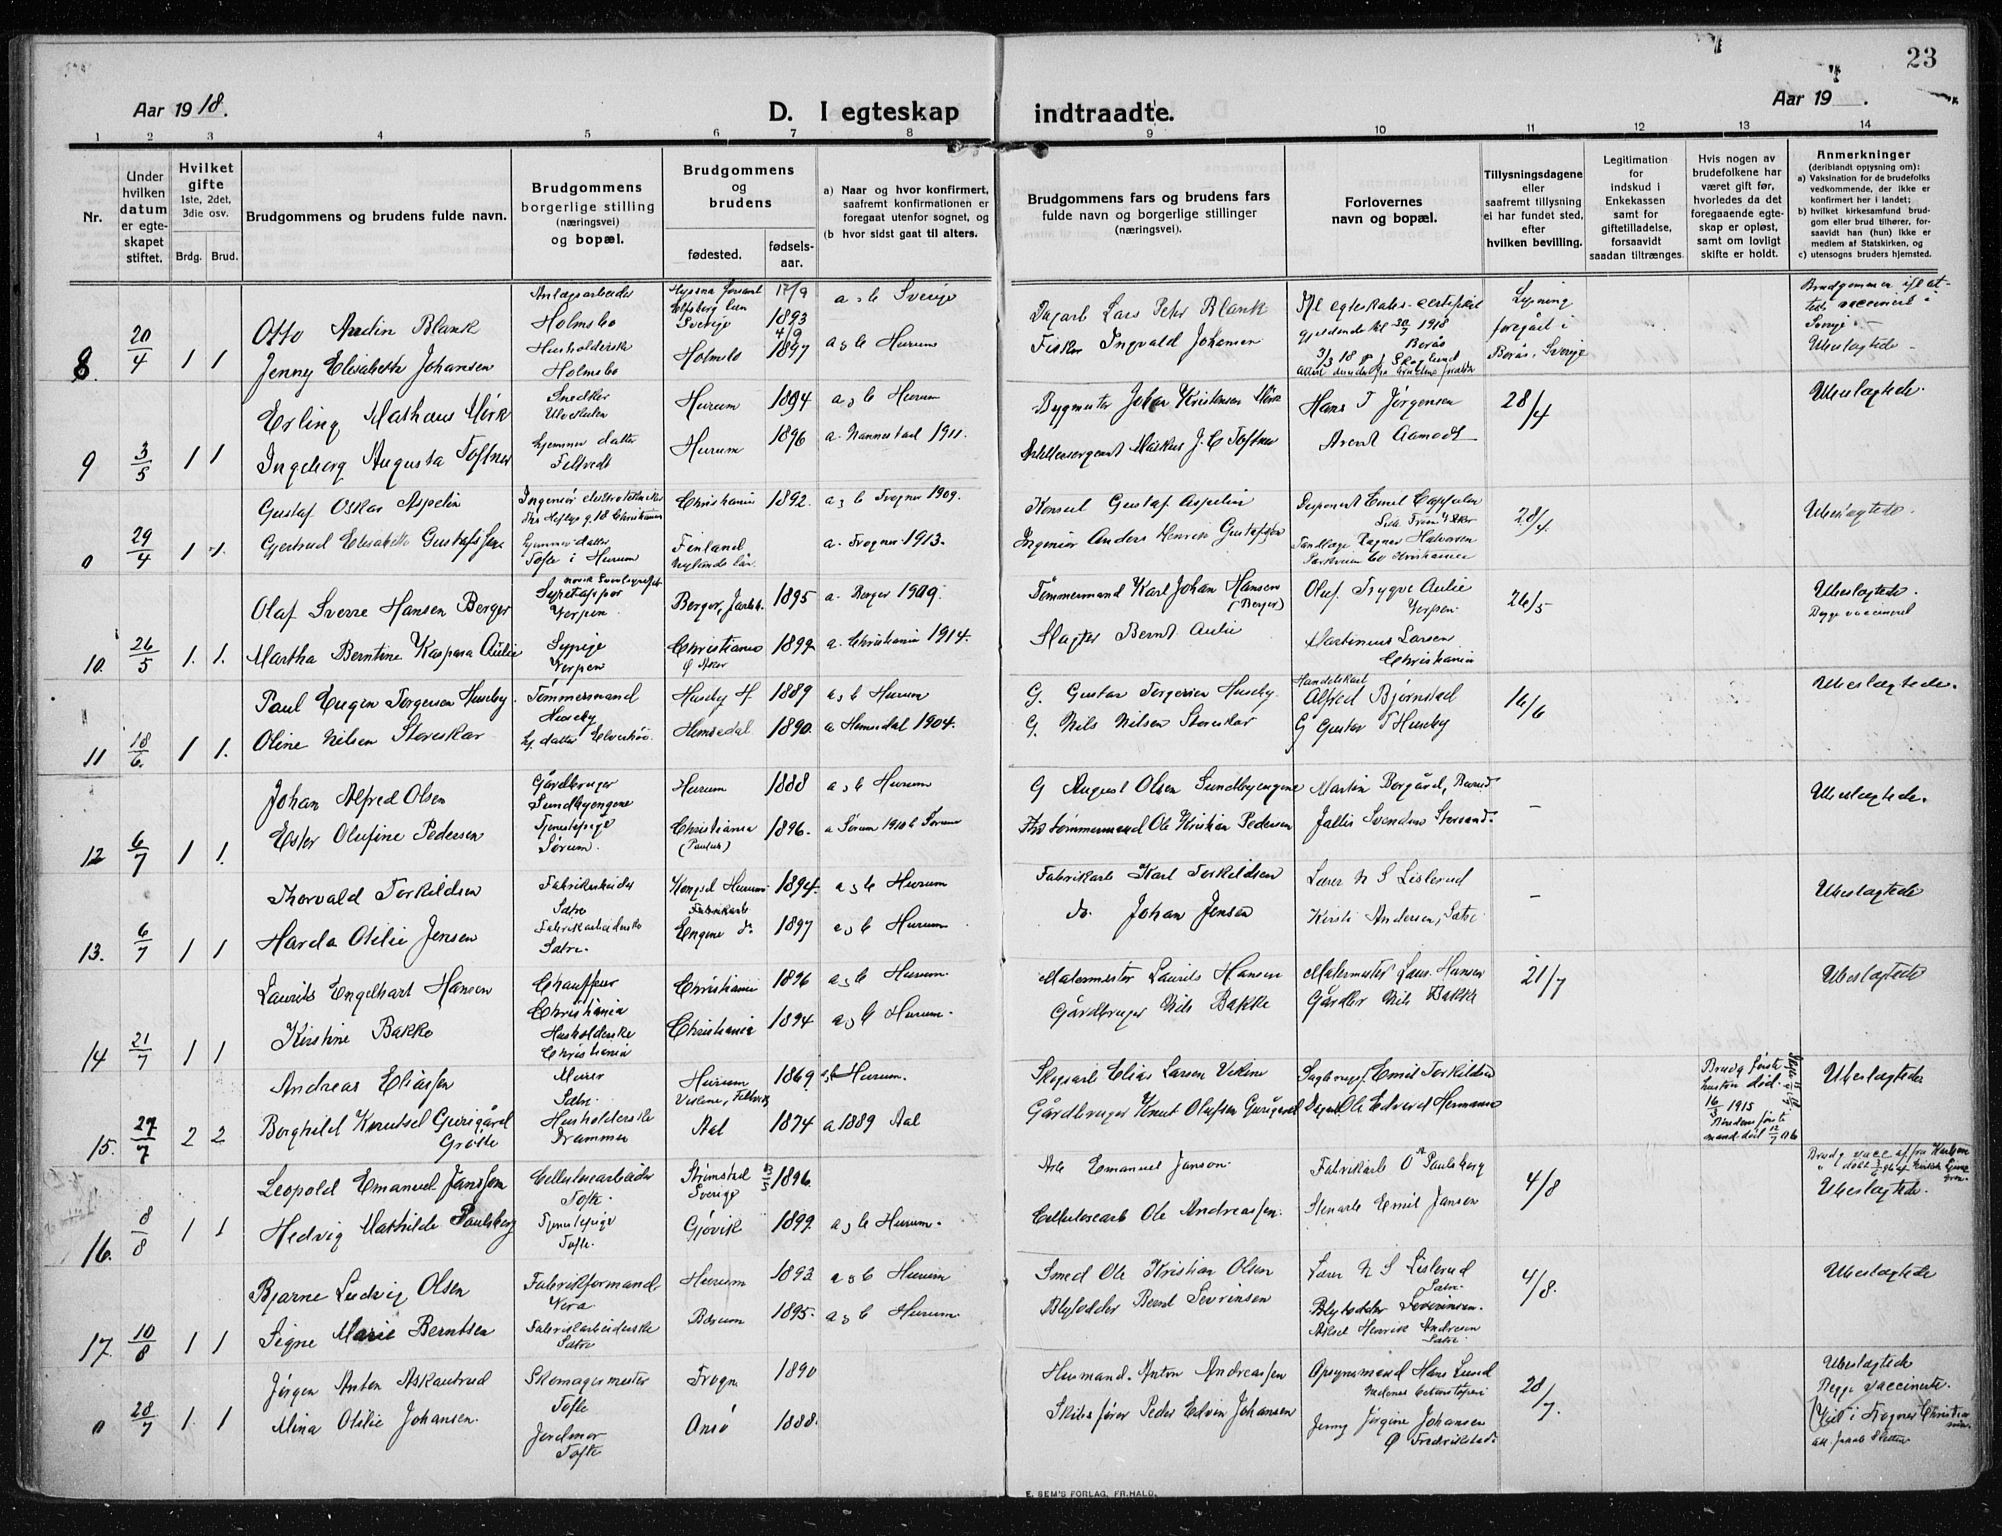 23
Aar 1918.
D. I egteskap indtraadte.
Aar 19 .
1 2 3 4 5 6 7 8 9 10 11 12 13 14
Nr.
Under hvilken datum er egteskapet stiftet.
Hvilket gifte 1ste, 2det, 3die osv.
Brdg. Brud.
Brudgommens og brudens fulde navn.
Brudgommens borgerlige stilling (næringsvei) og bopæl.
Brudgommens og brudens
fødested.
fødsels-aar.
a) Naar og hvor konfirmert, saafremt konfirmationen er foregaat utenfor sognet, og
(b hvor sidst gaat til alters.
Brudgommens fars og brudens fars fulde navn og borgerlige stillinger (næringsvei).
Forlovernes navn og bopæl.
Tillysningsdagene eller saafremt tillysning ei har fundet sted, efter hvilken bevilling.
Legitimation for indskud i Enkekassen samt for giftetilladelse, forsaavidt saadan tiltrænges
Hvis nogen av brudefolkene har været gift før, hvorledes da det foregaaende egteskap er opløst, samt om lovligt skifte er holdt.
Anmerkninger (deriblandt opysning om):
a) Vaksination for de brudefolks vedkommende, der ikke er konfirmert her i landet;
b) hvilket kirkesamfund brudgom eller brud tilhører, forsaavidt han (hun) ikke er medlem af Statskirken, og
c) utensogns bruders hjemsted.
8. 20/4 1 1
Otto Audin Blank
Jenny Elisabeth Johansen
Anlægsarbeider
Holmsbo
Husholderske
Holmsbo
Sverige
17/9 1893
Holmsbo
4/9 1897
a & b Sverige
a & b Hurum
Dagarb Lars Petr Blank
Fisker Ingvald Johansen
Lysning foregået i Borås, Sverige
Ubeslægtede
9 3/5 1 1
Erling Mathæus Mörk
Ingeborg Augusta Toftner
Snedker
Hjemmev datter
Feltvedt
Hurum 1894 a & b Hurum
Hurum 1896 a. Nannestad 1911.
Bygmester Johan Kristensen Mörk
Markus J. C Toftner
Hans T Jørgensen
Arent Aamodt
28/4
Ubeslægtede
0 29/4 1 1.
Gustaf Oskar Aspelin
Gjertrud Elisabeth Gustafssen
Ingeniør
Tofte i Hurum
Christiania 1892. a & b Frogner 1909.
Finland
Nylands län
a. Frogner 1913.
Konsul Gustaf Aspelin
Ingeniør Anders Henrik Gustafssen
Disponent Emil Cappelen
28/4
Ubeslægtede
10. 26/5 1. 1.
Olaf Sverre Hansen Berger
Martha Berntine Kaspara Aulie
Verpen
Sypige
Verpen
Berger, Jarlsb. 1895 a. Berger 1909.
Christiania
Ø Aker
1899 a. Christiania 1914.
Tømmermand Karl Johan Hansen (Berger)
Slagter Bernt Aulie
Oluf Trygve Aulie
Verpen.
Martinius Larsen
Christiania
26/5
Ubeslægtede.
Begge vaccineret
11 18/6. 1 1.
Paul Eugen Torgersen Huseby.
Oline Nilsen Storeskar
Tømmermand
Huseby
Hj datter Elverhöi
Huseby H. 1889 a & b Hurum
Hemsedal 1890. a Hemsedal 1904.
G. Gustav Torgersen Huseby.
G. Nils Nilsen Storeskar
Handelskarl
Alfred Bjørnstad
G Gustav T Huseby
16/6
Ubeslægtede.
12 6/7 1 1.
Johan Alfred Olsen
Ester Olufine Pedersen
Gårdbruger
Sundbyengene
Tjenestepige
Sørum.
Hurum 1888 a & b Hurum
Christiania
(Paulus)
1896. a Sørum 1910 b Sørum
G August Olsen Sundbyengene
Tømmermand Ole Kristian Pedersen
Martin Borgård,
–
Ubeslægtede.
13. 6/7 1 1
Thorvald Torkildsen
Harda Otilie Jensen
Fabrikarbeider
Sætre
Fabrikarbeiderske
Sætre.
Hurum 1894. a & b Hurum
Engene do 1897 a & b Hurum
Fabrikarb Karl Torkildsen
do. Johan Jensen
Lærer N S Lislerud
Kirsti Andersen, Sætre
–
Ubeslægtede
14 21/7 1 1
Laurits Engelhart Hansen
Kirstine Bakke
Chauffeur
Christiania
Husholderske
Christiania
Christiania 1896 a & b Hurum.
Christiania 1894 a & b Hurum.
Malermester Laurits Hansen
Gårdbruger Nils Bakke
Malermester Laur. Hansen
Gårdbr Nils Bakke
21/7
Ubeslægtede
15. 27/7 2 2
Andreas Eliassen
Borghild Knutsd Gurigård
Grøtte
Murer
Sætre.
Husholderske
Drammen
Hurum 1869 a & b Hurum.
Aal 1874 a 1889 Aal
Skogsarb Elias Larsen Vikene
Gårdbruger Knut Olufsen Gurigård
Emil Torkildsen
Ole Edvard Hermans
Brudg første hustru død. 16/3 1915
Brudens første mand død 12/7 06
Ubeslægtede
16. 8/8 1 1
Leopold Emanuel Janssen
Hedvig Mathilde Paulsberg
Cellulosearbeider
Tofte.
Tjenestepige
Tofte.
Strømstad
Sverige
1896.
Gjøvik 1899. a & b Hurum.
Arb Emanuel Janson.
Cellulosearb Ole Andreassen.
Fabrikarb O Paulsberg
Stenarb Emil Jansen
4/8
Ubeslægtede.
17. 10/8 1 1
Bjarne Ludvig Olsen
Signe Marie Berntsen
Fabrikformand
Vera
Fabrikarbeiderske
Sætre
Hurum 1893. a & b Hurum
Bærum 1895. a & b Hurum.
Smed Ole Kristian Olsen
Blylodder Bernt Sevrinsen
Lærer N S Lislerud
Sætre.
Blylodder Severinsen.
Aksel Henrik Andresen
Sætre.
4/8.
Ubeslægtede
0 28/7 1. 1
Jørgen Anton Askautrud
Mina Otilie Johansen.
Skomagermester
Tofte
Jordmor
Tofte
Frogn 1890
Onsö 1888.
Husmand. Anton Andreassen
Skibsfører Peder Edvin Johansen
Opsynsmand Hans Lund
Jenny Jørgine Johansen
Ø Fredrikstad.
28/7.
Ubeslægtede
Begge vaccinerte.
E. SEM'S FORLAG, FR.HALD.